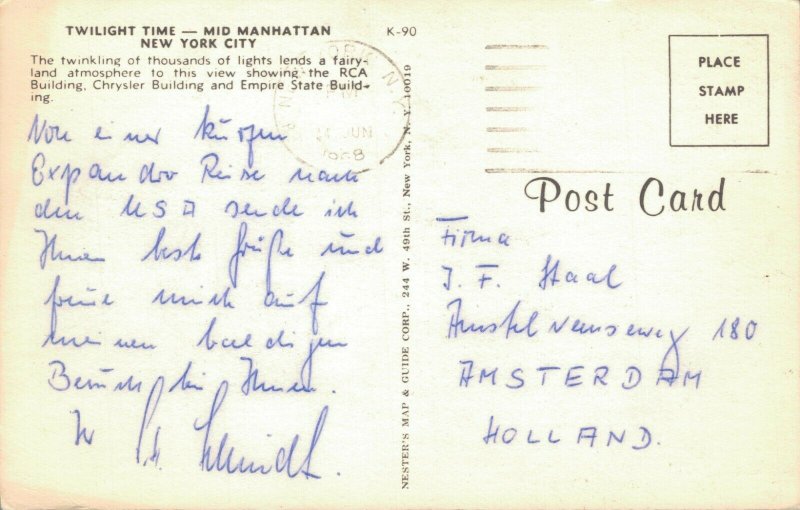 TWILIGHT TIME — MID MANHATTAN
NEW YORK CITY
K-90
The twinkling of thousands of lights lends a fairy-
land atmosphere to this view showing the RCA
Building, Chrysler Building and Empire State Build-
ing.
Von einer kurzen
Reise nach
den USA sende ich
Ihnen beste Grüße und
freue mich auf
meinen baldigen
Besuch bei Ihnen.
Ihr
Schmidt.
NESTER'S MAP & GUIDE CORP., 244 W. 49th St., New York, N. Y. 10019
N.Y.
PM
JUN
1968
PLACE
STAMP
HERE
Post Card
Firma
J. F. Staal
Amstelveenseweg 180
AMSTERDAM
HOLLAND.